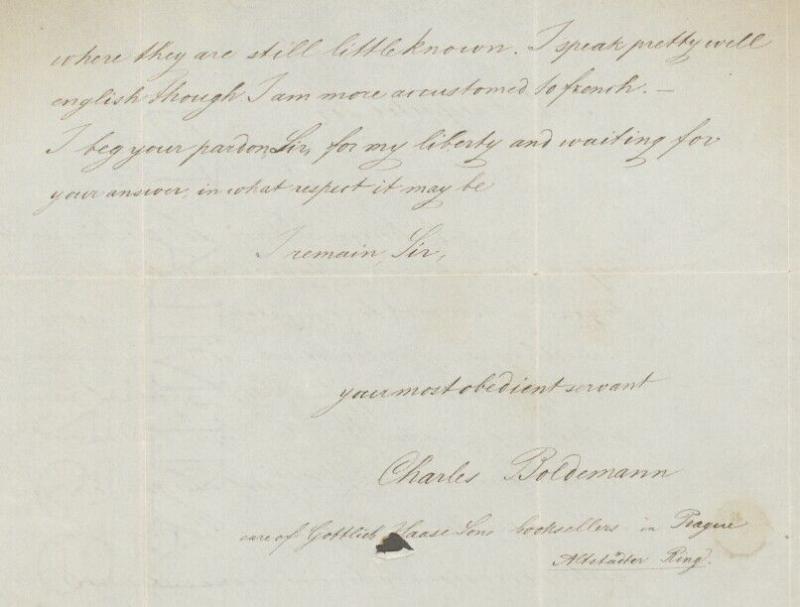 where they are still little known. I speak pretty well
english though I am more accustomed to french. —
I beg your pardon, Sir, for my liberty and waiting for
your answer, in what respect it may be
I remain, Sir,
your most obedient servant
Charles Boldemann
care of Gottlieb Haase Sons booksellers in Prague
Altstädter Ring.